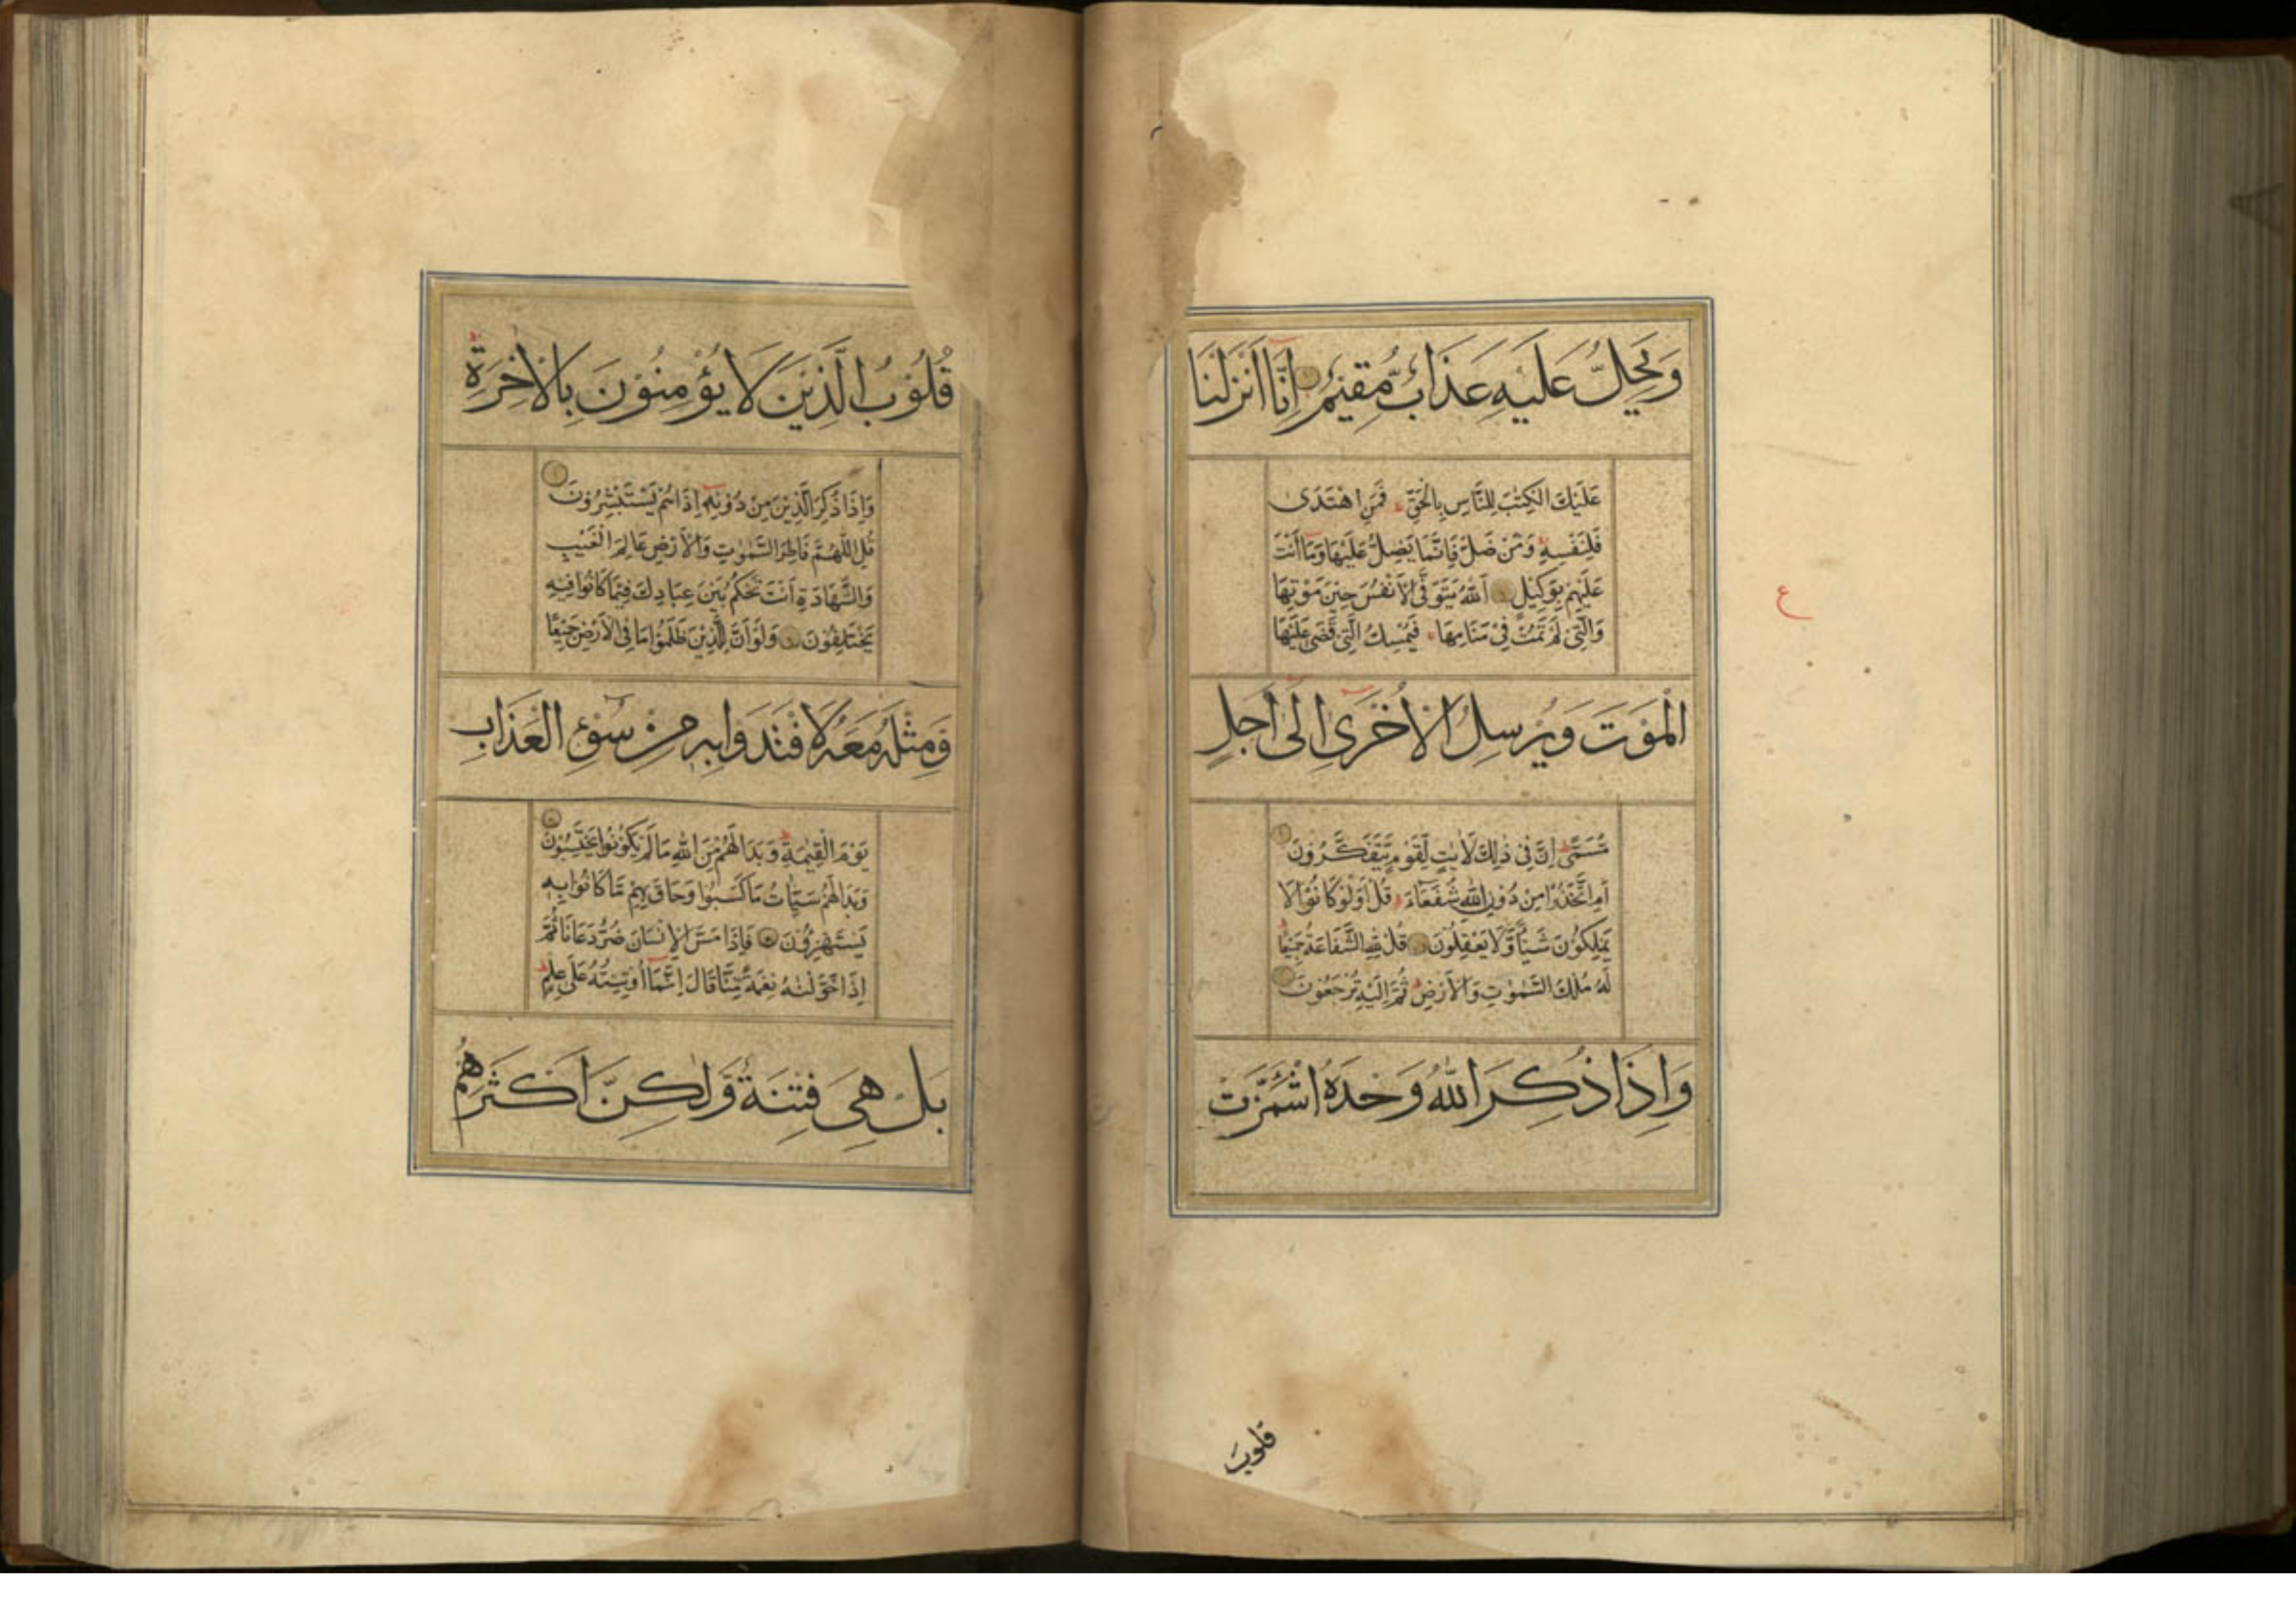 وَيَحِلُّ عَلَيْهِ عَذَابٌ مُّقِيْمٌ اِنَّا اَنْزَلْنَا
عَلَيْكَ الْكِتٰبَ لِلنَّاسِ بِالْحَقِّ فَمَنِ اهْتَدٰى
فَلِنَفْسِهٖ وَمَنْ ضَلَّ فَاِنَّمَا يَضِلُّ عَلَيْهَا وَمَا اَنْتَ
عَلَيْهِمْ بِوَكِيْلٍ اَللّٰهُ يَتَوَفَّى الْاَنْفُسَ حِيْنَ مَوْتِهَا
وَالَّتِيْ لَمْ تَمُتْ فِيْ مَنَامِهَا فَيُمْسِكُ الَّتِيْ قَضٰى عَلَيْهَا
الْمَوْتَ وَيُرْسِلُ الْاُخْرٰى اِلٰى اَجَلٍ
مُّسَمًّى اِنَّ فِيْ ذٰلِكَ لَاٰيٰتٍ لِّقَوْمٍ يَّتَفَكَّرُوْنَ
اَمِ اتَّخَذُوْا مِنْ دُوْنِ اللّٰهِ شُفَعَآءَ قُلْ اَوَلَوْ كَانُوْا لَا
يَمْلِكُوْنَ شَيْئًا وَّلَا يَعْقِلُوْنَ قُلْ لِلّٰهِ الشَّفَاعَةُ جَمِيْعًا
لَهٗ مُلْكُ السَّمٰوٰتِ وَالْاَرْضِ ثُمَّ اِلَيْهِ تُرْجَعُوْنَ
وَاِذَا ذُكِرَ اللّٰهُ وَحْدَهُ اشْمَئَزَّتْ
ع
قلوبُ
قُلُوْبُ الَّذِيْنَ لَا يُؤْمِنُوْنَ بِالْاٰخِرَةِ
وَاِذَا ذُكِرَ الَّذِيْنَ مِنْ دُوْنِهٖ اِذَا هُمْ يَسْتَبْشِرُوْنَ
قُلِ اللّٰهُمَّ فَاطِرَ السَّمٰوٰتِ وَالْاَرْضِ عَالِمَ الْغَيْبِ
وَالشَّهَادَةِ اَنْتَ تَحْكُمُ بَيْنَ عِبَادِكَ فِيْمَا كَانُوْا فِيْهِ
يَخْتَلِفُوْنَ وَلَوْ اَنَّ لِلَّذِيْنَ ظَلَمُوْا مَا فِي الْاَرْضِ جَمِيْعًا
وَّمِثْلَهٗ مَعَهٗ لَافْتَدَوْا بِهٖ مِنْ سُوْٓءِ الْعَذَابِ
يَوْمَ الْقِيٰمَةِ وَبَدَا لَهُمْ مِّنَ اللّٰهِ مَا لَمْ يَكُوْنُوْا يَحْتَسِبُوْنَ
وَبَدَا لَهُمْ سَيِّاٰتُ مَا كَسَبُوْا وَحَاقَ بِهِمْ مَّا كَانُوْا بِهٖ
يَسْتَهْزِءُوْنَ فَاِذَا مَسَّ الْاِنْسَانَ ضُرٌّ دَعَانَا ثُمَّ
اِذَا خَوَّلْنٰهُ نِعْمَةً مِّنَّا قَالَ اِنَّمَا اُوْتِيْتُهٗ عَلٰى عِلْمٍ
بَلْ هِيَ فِتْنَةٌ وَّلٰكِنَّ اَكْثَرَهُمْ